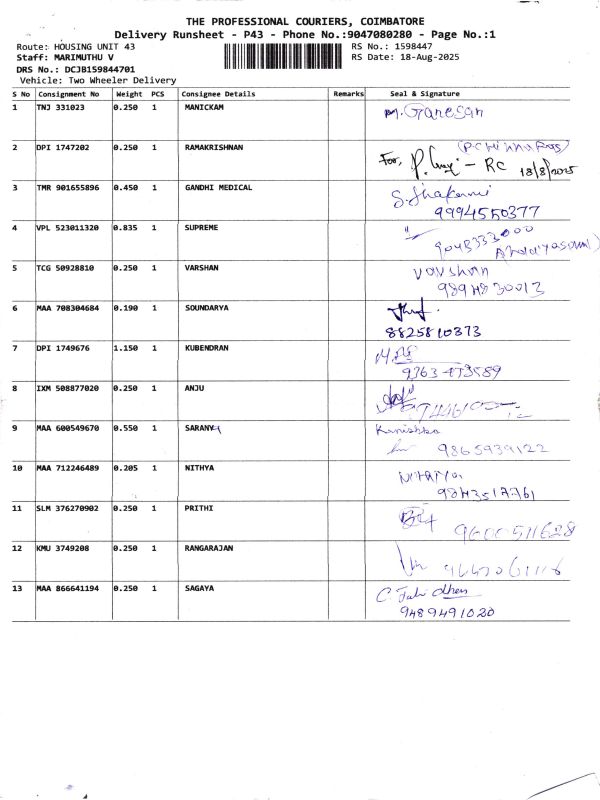 THE PROFESSIONAL COURIERS, COIMBATORE
Delivery Runsheet - P43 - Phone No.:9047080280 - Page No.:1
Route: HOUSING UNIT 43 RS No.: 1598447
Staff: MARIMUTHU V RS Date: 18-Aug-2025
DRS No.: DCJB159844701
Vehicle: Two Wheeler Delivery
S No Consignment No Weight PCS Consignee Details Remarks Seal & Signature
1 TNJ 331023 0.250 1 MANICKAM M. Ganesan
2 DPI 1747202 0.250 1 RAMAKRISHNAN
For, - RC 18/8/2025
3 TMR 901655896 0.450 1 GANDHI MEDICAL
9994550377
4 VPL 523011320 0.835 1 SUPREME
5 TCG 50928810 0.250 1 VARSHAN Varshan
6 MAA 708304684 0.190 1 SOUNDARYA
8825810373
7 DPI 1749676 1.150 1 KUBENDRAN
9363 473589
8 IXM 508877020 0.250 1 ANJU
9 MAA 600549670 0.550 1 SARANYA Kanishka
9865939122
10 MAA 712246489 0.205 1 NITHYA
11 SLM 376270902 0.250 1 PRITHI
9600511628
12 KMU 3749208 0.250 1 RANGARAJAN
13 MAA 866641194 0.250 1 SAGAYA
9489491020